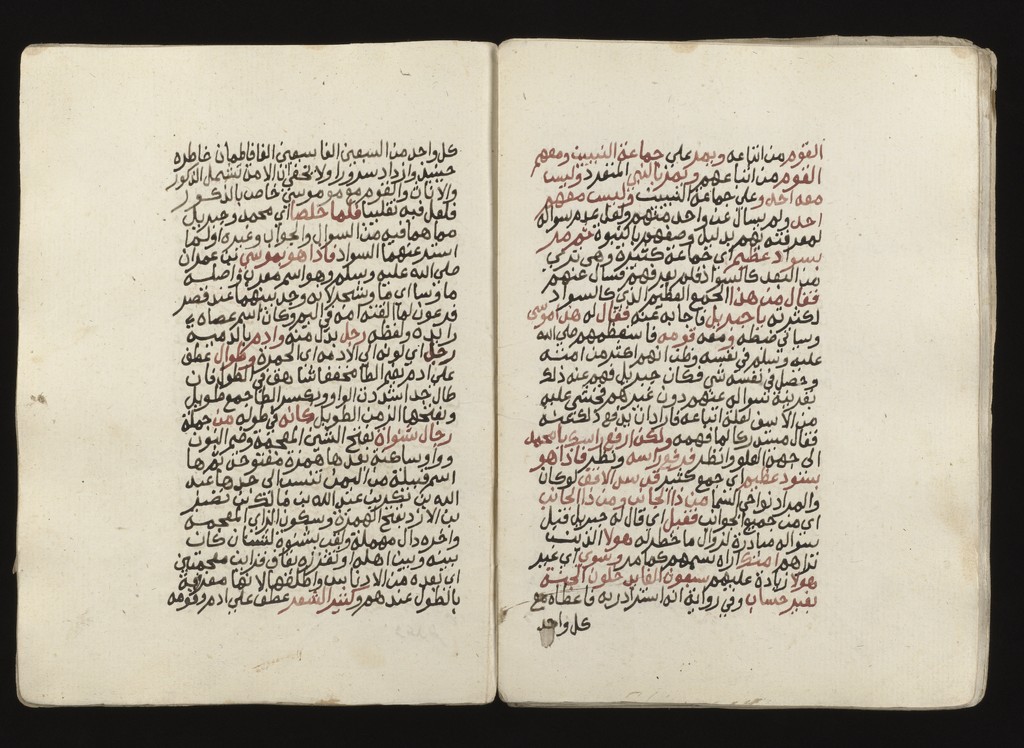 القوم من اتباعه ويمر علي جماعة النبيين ومعهم
القوم من اتباعهم ويمر بالنبي المنفرد وليس
معه احد وعلي جماعة النبيين وليس معهم
احد ولم يسال عن واحد منهم ولعل عدم سواله
لمعرفته لهم بدليل وصفهم بالنبوة ثم مر
بسواد عظيم اي جماعة كثيرة وهي تري
من البعد كالسواد فلم يعرفهم فسال عنهم
فقال من هذا الجمع العظيم الذي كالسواد
لكثرته يا جبريل فاجابه عنه فقال له هذا موسي
وسياتي ضبطه ومعه قومه فاستعظمهم صلي الله
عليه وسلم في نفسه وظن انهم اكثر من امته
وحصل في نفسه شي فكان جبريل فهم عنه ذلك
بقرينة سواله عنهم دون غيرهم فخشي عليه
من الاسف لقلة اتباعه فاراد ان يدفع ذلك عنه
فقال مستدركا لما فهمه ولكن ارفع راسك يا محمد
الي جهة العلو وانظر فرفع راسه ونظر فاذا هو
بسواد عظيم اي جمع كثير قد سد الافق لو كان
والمراد نواحي السما من ذا الجانب ومن ذا الجانب
اي من جميع الجوانب فقيل اي قال له جبريل قبل
سواله مبادرة لزوال ما خطر له هولا الذين
تراهم امتك اراه تسمهم كما مر وسوي اي غير
هولا زيادة عليهم سبعون الفا يدخلون الجنة
بغير حساب وفي رواية انه استزاد ربه فاعطاه مع
كل واحد
كل واحد من السبعين الفا سبعين الفا فاطمان خاطره
حينيذ وازداد سرورا ولا يخفي ان الامة تشمل الذكور
والاناث والقوم موسي خاص بالذكور
فلعل فيه تغليبا فلما خلصا اي محمد وجبريل
مما هما فيه من السوال والجواب وغيره او لما
استد عنهما السواد فاذا هو بموسي بن عمران
صلي الله عليه وسلم وهو اسم معرب واصله
ما وشا اي ما وشجر لانه وجد بينهما عند قصر
فرعون لما القته امه في اليم وكان اسم عصاه
زايدة ولفظه رجل بدل منه وادم بالرمية
رجل اي لونه اي الادمه اي الحمرة وطوال عطف
علي ادم بضم الطا مخففا تناهي في الطول فان
طال جدا شددت الواو وبكسر الطا جمع طويل
وبفتحها الزمن الطويل كانه في طوله من جملة
رجال شنواة بفتح الشين المعجمة وضم النون
وواو ساكنة بعدها همزة مفتوحة ثم ها
اسم قبيلة من اليمن تنسب الي جدها عبد
الله بن كعب بن عبد الله بن مالك بن نضر
بن الازد بفتح الهمزة وسكون الزاي المعجمة
واخره دال مهملة ولقب بشنوة لشنان كان
بينه وبين اهله
اي بعده من الادناس
بالطول عندهم وكثير الشعر عطف علي ادم وقوفه